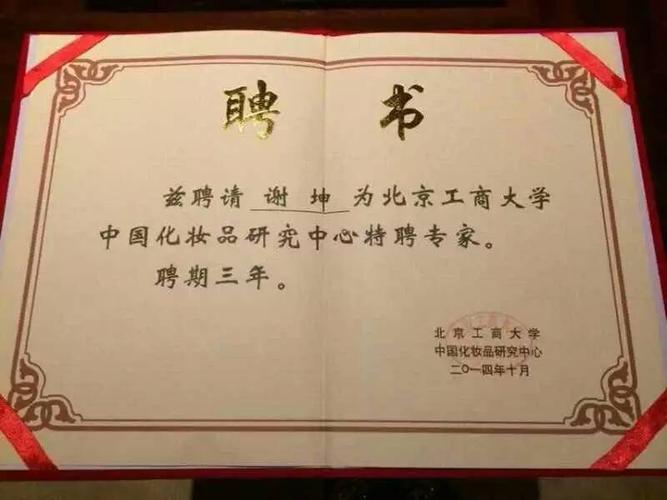 聘 书
兹聘请 谢 坤 为北京工商大学
中国化妆品研究中心特聘专家。
聘期三年。
北京工商大学
中国化妆品研究中心
二〇一四年十月